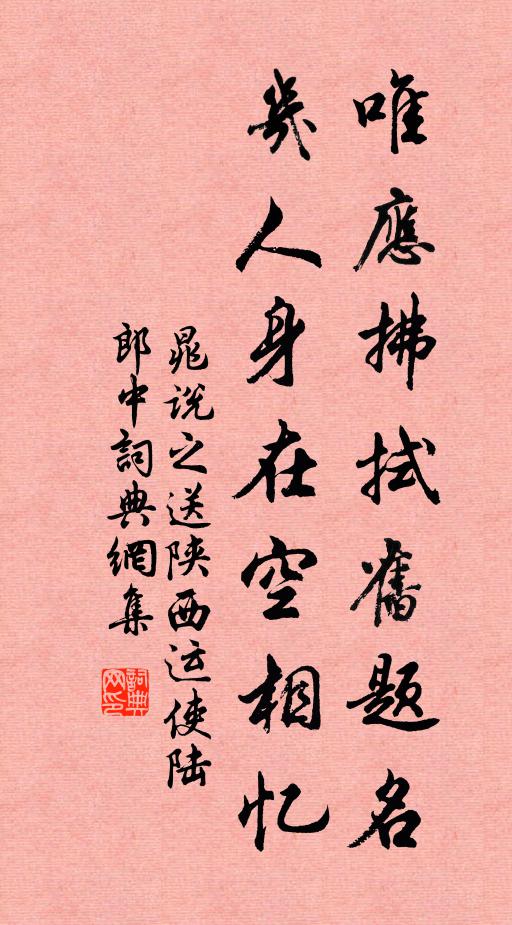 唯應拂拭舊题名
幾人身在空相忆
晁说之送陝西运使陆
郎中詞典網集
詞典網印